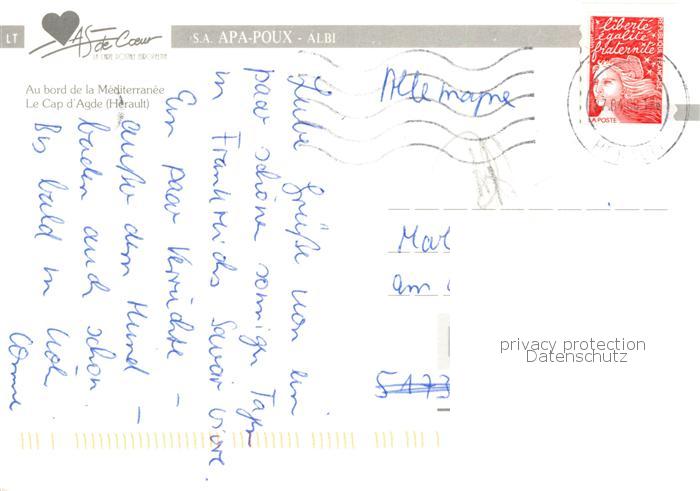 LT
As de Cœur
LA CARTE POSTALE EUROPEENNE
S.A. APA-POUX - ALBI
Au bord de la Méditerranée
Le Cap d'Agde (Hérault)
Liebe Grüße von ein
paar schönen sonnigen Tagen
in Frankreichs Savoir vivre.
Ein paar Verrückte -
außer dem Hund -
baden auch schon.
Bis bald in Köln
Allemagne
liberté
égalité
fraternité
REPUBLIQUE FRANÇAISE
LA POSTE
Mar
am
5173
privacy protection
Datenschutz